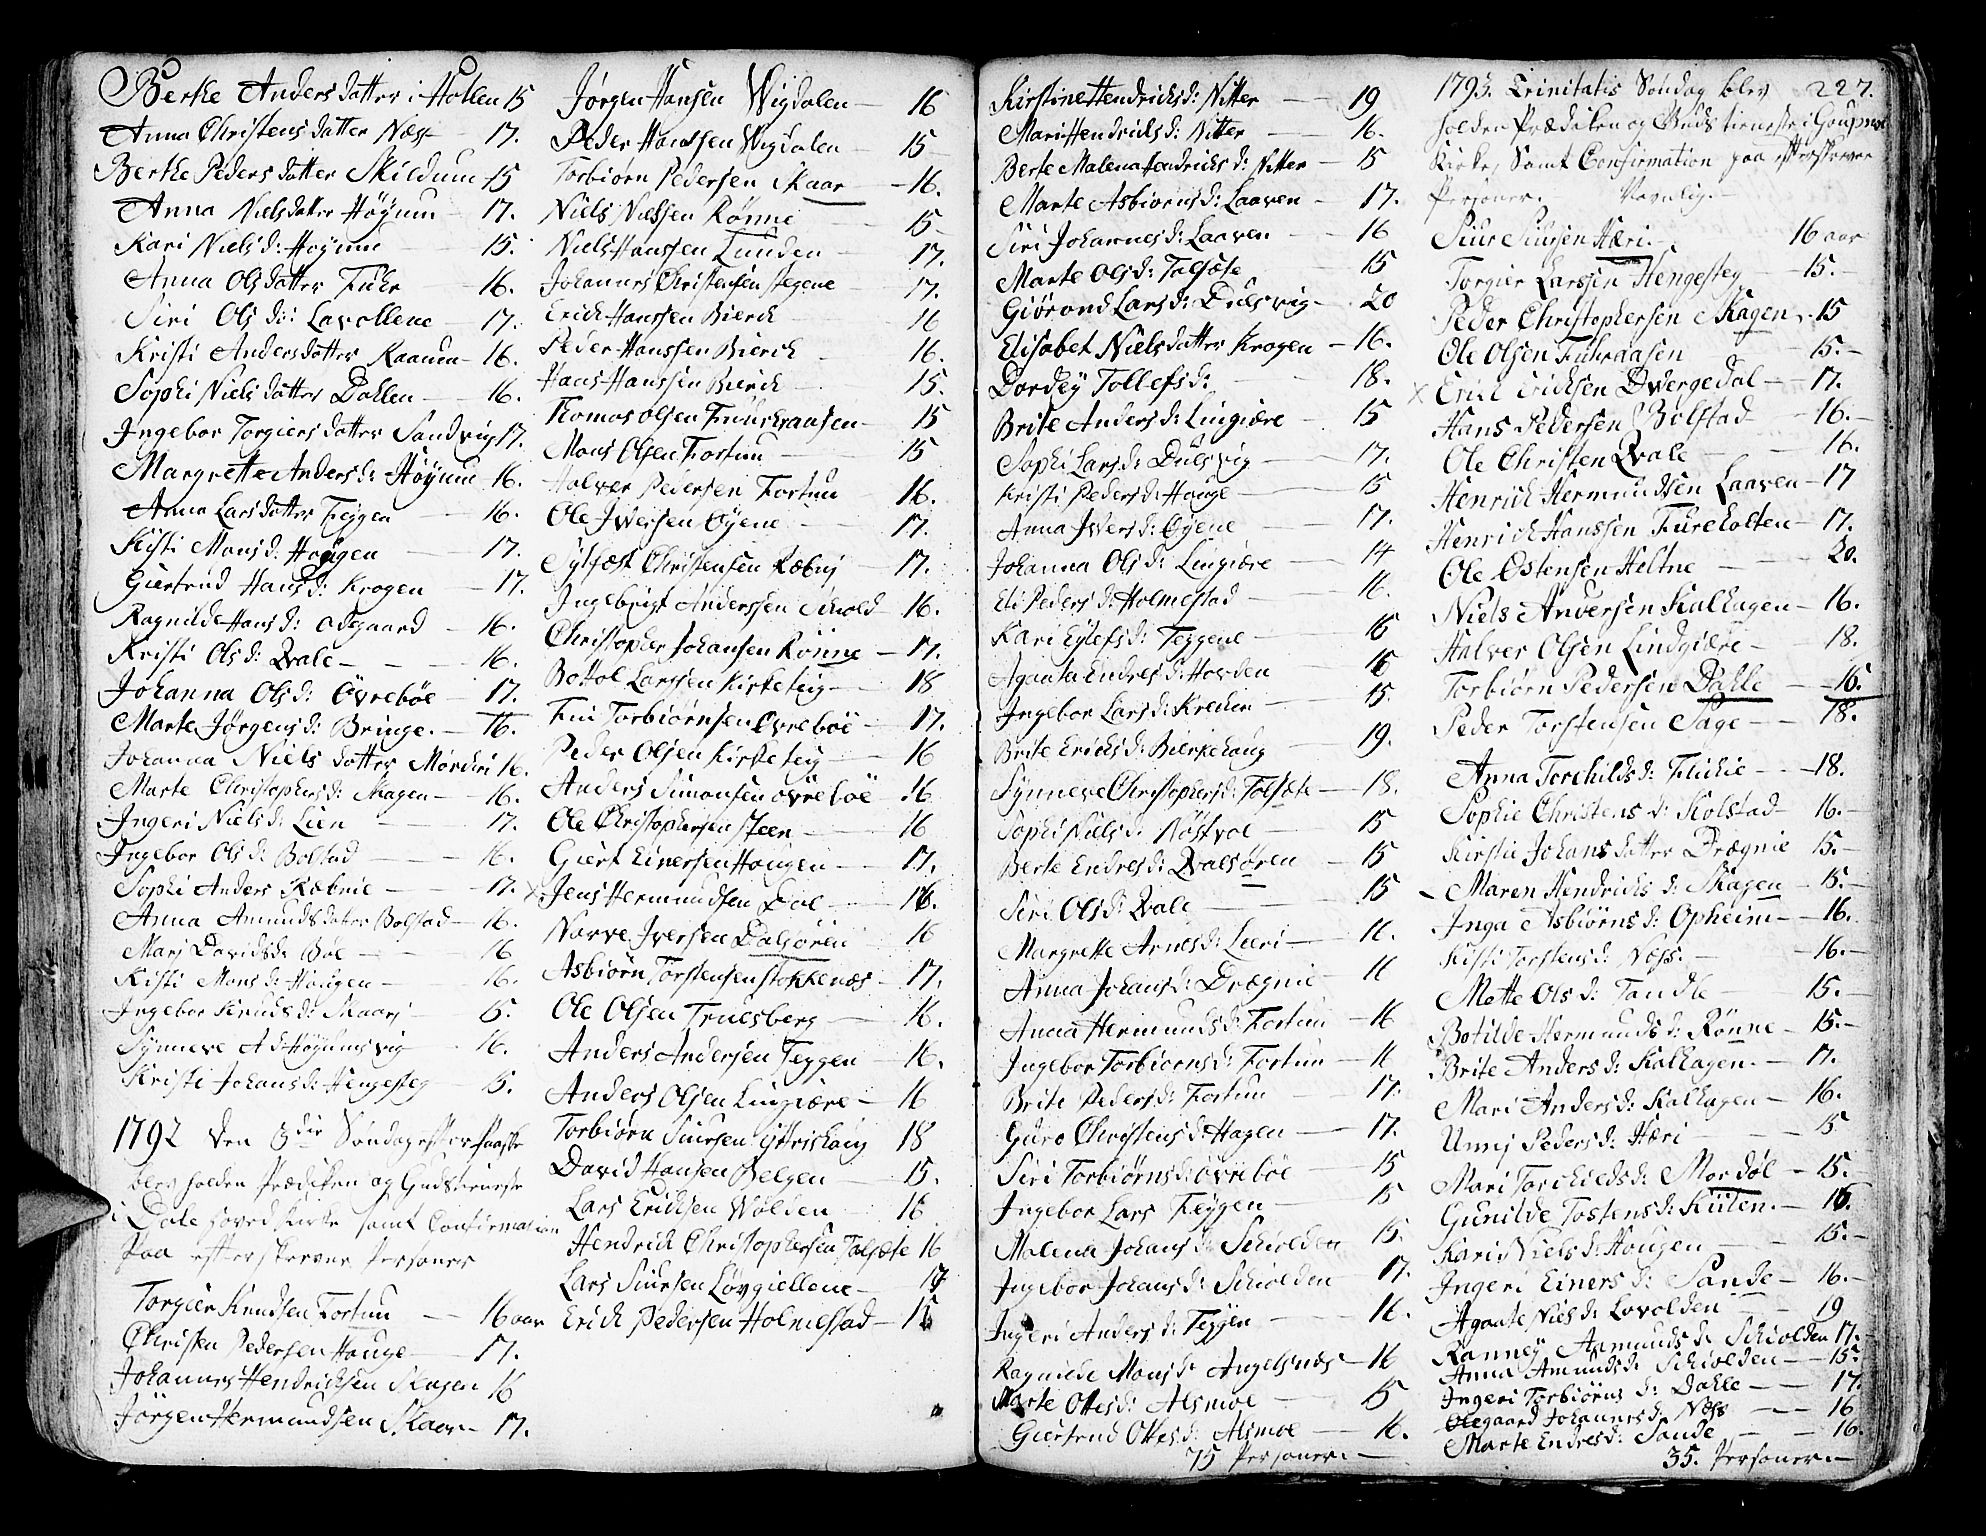 Berthe Anders datter i Hollen 15
Anna Christens datter Næss 17.
Berthe Peders datter Skildum 15
Anna Nielsdatter Høyum 17.
Kari Niels d: Høyum 15.
Anna Olsdatter Fuhr 16.
Siri Ols d: Lavollene 17.
Kristi Andersdatter Kaauma 16.
Sophi Niels datter Dahlen 16.
Ingebor Torgiers datter Sandvig 17.
Margrette Anders d: Høyum 16.
Anna Lars datter Feygen 16.
Kisti Mons d: Hougen 17.
Giertrud Hans d: Krogen 17.
Ragnilde Hans d: Odegaard 16.
Kristi Ols d: Qvale 16.
Johanna Ols d: Øvrebøe 17.
Marte Jørgens d: Bringe 16.
Johanna Niels datter Mørchri 16.
Marte Christophers d: Skagen 16.
Ingeri Niels d: Lien 17.
Ingebor Ols d: Bolstad 16.
Sophi Anders Kæbnie 17.
Anna Amunds dater Bolstad 16.
Marj Davids d: Bøe 16
Kisti Mons d: Hougen 16.
Ingebor Knuds d: Skaarj 15.
Synneve A d: Høyumsvig 16.
Kristi Johans d: Hengesteg 15.
1792 den 3die Søndag efter Paaske
blev holden Prædiken og Gudstieneste
i Dale hoved Kirke samt Confirmation
paa efterskrevne Personer
Torgier Knudsen Fortun 16 aar
Christen Pedersen Houge 17.
Johannes Hendrichsen Skagen 16
Jørgen Hermundsen Skaar 17.
Jørgen Hansen Wigdalen 16
Peder Hanssen Wigdalen 15
Torbiørn Pedersen Skaar 16.
Niels Nielssen Rønne 15
Niels Hanssen Lunden 17.
Johannes Christensen Stegene 17.
Erich Hanssen Bierch 16
Peder Hanssen Bierch 16.
Hans Hanssen Bierch 15.
Thomas Olsen 15
Mons Olsen Fortun 15
Halver Pedersen Fortun 16.
Ole Iversen Øyene 17.
Sylfæst Christensen Kæbnj 17.
Ingebrigt Anderssen Schold 16.
Christopher Johansen Rønne 17.
Bottol Larssen Kirketeig 18
Fin Torbiørnsen Øvrebøe 17.
Peder Olsen Kirketeig 16
Anders Simonsen Øvrebøe 16
Ole Christophersen Steen 16
Giert Einersen Hougen 17.
x Jens Hermundsen Bøe 16.
Narve Iversen Dalsøren 16
Asbiørn Torstensen Stokkenæs 17.
Ole Olsen Truesberg 16.
Anders Andersen Feggen 16.
Anders Olsen Lingiære 16
Torbiørn Siursen Ytrishaug 18
David Hansen Bergen 15.
Lars Erichsen Wolden 16
Hendrich Christophersen Talsæte 16
Lars Siursen Løvgiellene 17
Erich Pedersen Holmestad 15
Kirstine Hendrichs d: Nitter 19
Mari Hendrichs d: Nitter 16.
Berte Malena Hendrichs d: Nitter 15
Marte Asbiørns d: Laaven 17.
Siri Johannes d: Laaven 16
Marte Ols d: Talsæte 15
Giørond Lars d: Dulsvig 20
Elisabet Niels datter Krogen 16.
Dordey Tollefs d: 18.
Brite Anders d: Lingiære 15
Sophi Lars d: Dulsvig 17.
Kristi Peders d: Houge 15
Anna Ivers d: Øyene 17.
Johanna Ols d: Lingiære 14
Eli Peders d: Holmestad 16.
Kari Eylefs d: Feggene 16
Agaata Endres d: Horden 16
Ingebor Lars d: Krechen 15.
Brite Erichs d: Bierkehaug 19.
Synneve Christophers d: Talsæte 18.
Sophi Niels d: Røstvoe 15
Berte Endres d: Qvalsøren 15
Siri Ols d: Qvale 15
Margrette Arnes d: Lieri 16.
Anna Johans d: Drægnie 16
Anna Hermunds d: Fortun 16
Ingebor Torbiorns d: Fortun 16
Brite Peders d: Fortun 17.
Guro Christens d: Hagen 17.
Siri Torbiørns d: Øvrebøe 15
Ingebor Lars Feygen 15
Malena Johans d: Schiolden 15.
Ingebor Johans d: Schiolden 17.
Ingeri Anders d: Feggen 16.
Ragnilde Mons d: Angelsnæs 16
Marte Ottes d: Alsmoe 15
Giertrud Ottes d: Alsmoe 16.
75 Personer.
1793. Trinitatis Søndag blev 227.
holden Prædiken og Gudstieneste i Goupne
Kirke, Samt Confirmation paa efterskrevne
Personer. Navnlig.
Siur Siursen Hæri 16 aar
Torgier Larssen Hengesteg 15.
Peder Christophersen Skagen 15
Ole Olsen Fuhraasen 15.
x Erich Erichsen Dvergedal 17.
Hans Pedersen Bolstad 16.
Ole Christen Qvale 16.
Henrich Hermundsen Laaven 17
Henrich Hanssen Fureholten 17.
Ole Østensen Heltne 20.
Niels Andersen Kalhagen 16.
Halver Olsen Lindgiære 18.
Torbiørn Pedersen Dahle 16.
Peder Torstensen Sage 18.
Anna Torchilds d: Flichie 18.
Sophie Christens d: Kolstad 16.
Kirstie Johans datter Drægnie 15.
Maren Hendrichs d: Skagen 15.
Inga Asbiørns d: Opheim 16.
Kisti Torstens d: Næss. 16.
Mette Ols d: Tandle 15.
Botilde Hermunds d: Rønne 15.
Brite Anders d: Kalhagen. 17.
Mari Anders d: Kalhagen 16.
Unnj Peders d: Hæri 15
Mari Torchields d: Mordøl 15.
Gunilde Tostens d: Kiilen. 16.
Kari Niels d: Hougen 15.
Ingeri Einers d: Sande 16.
Agaate Niels d: Lovolden 19
Ranney Aamunds d: Schiolden 17.
Anna Amunds d: Schiolden 15.
Ingeri Torbiørns d: Dahle 17.
Olegaard Johannes d: Næss 16
Marte Endres d: Sande 16.
35. Personer.